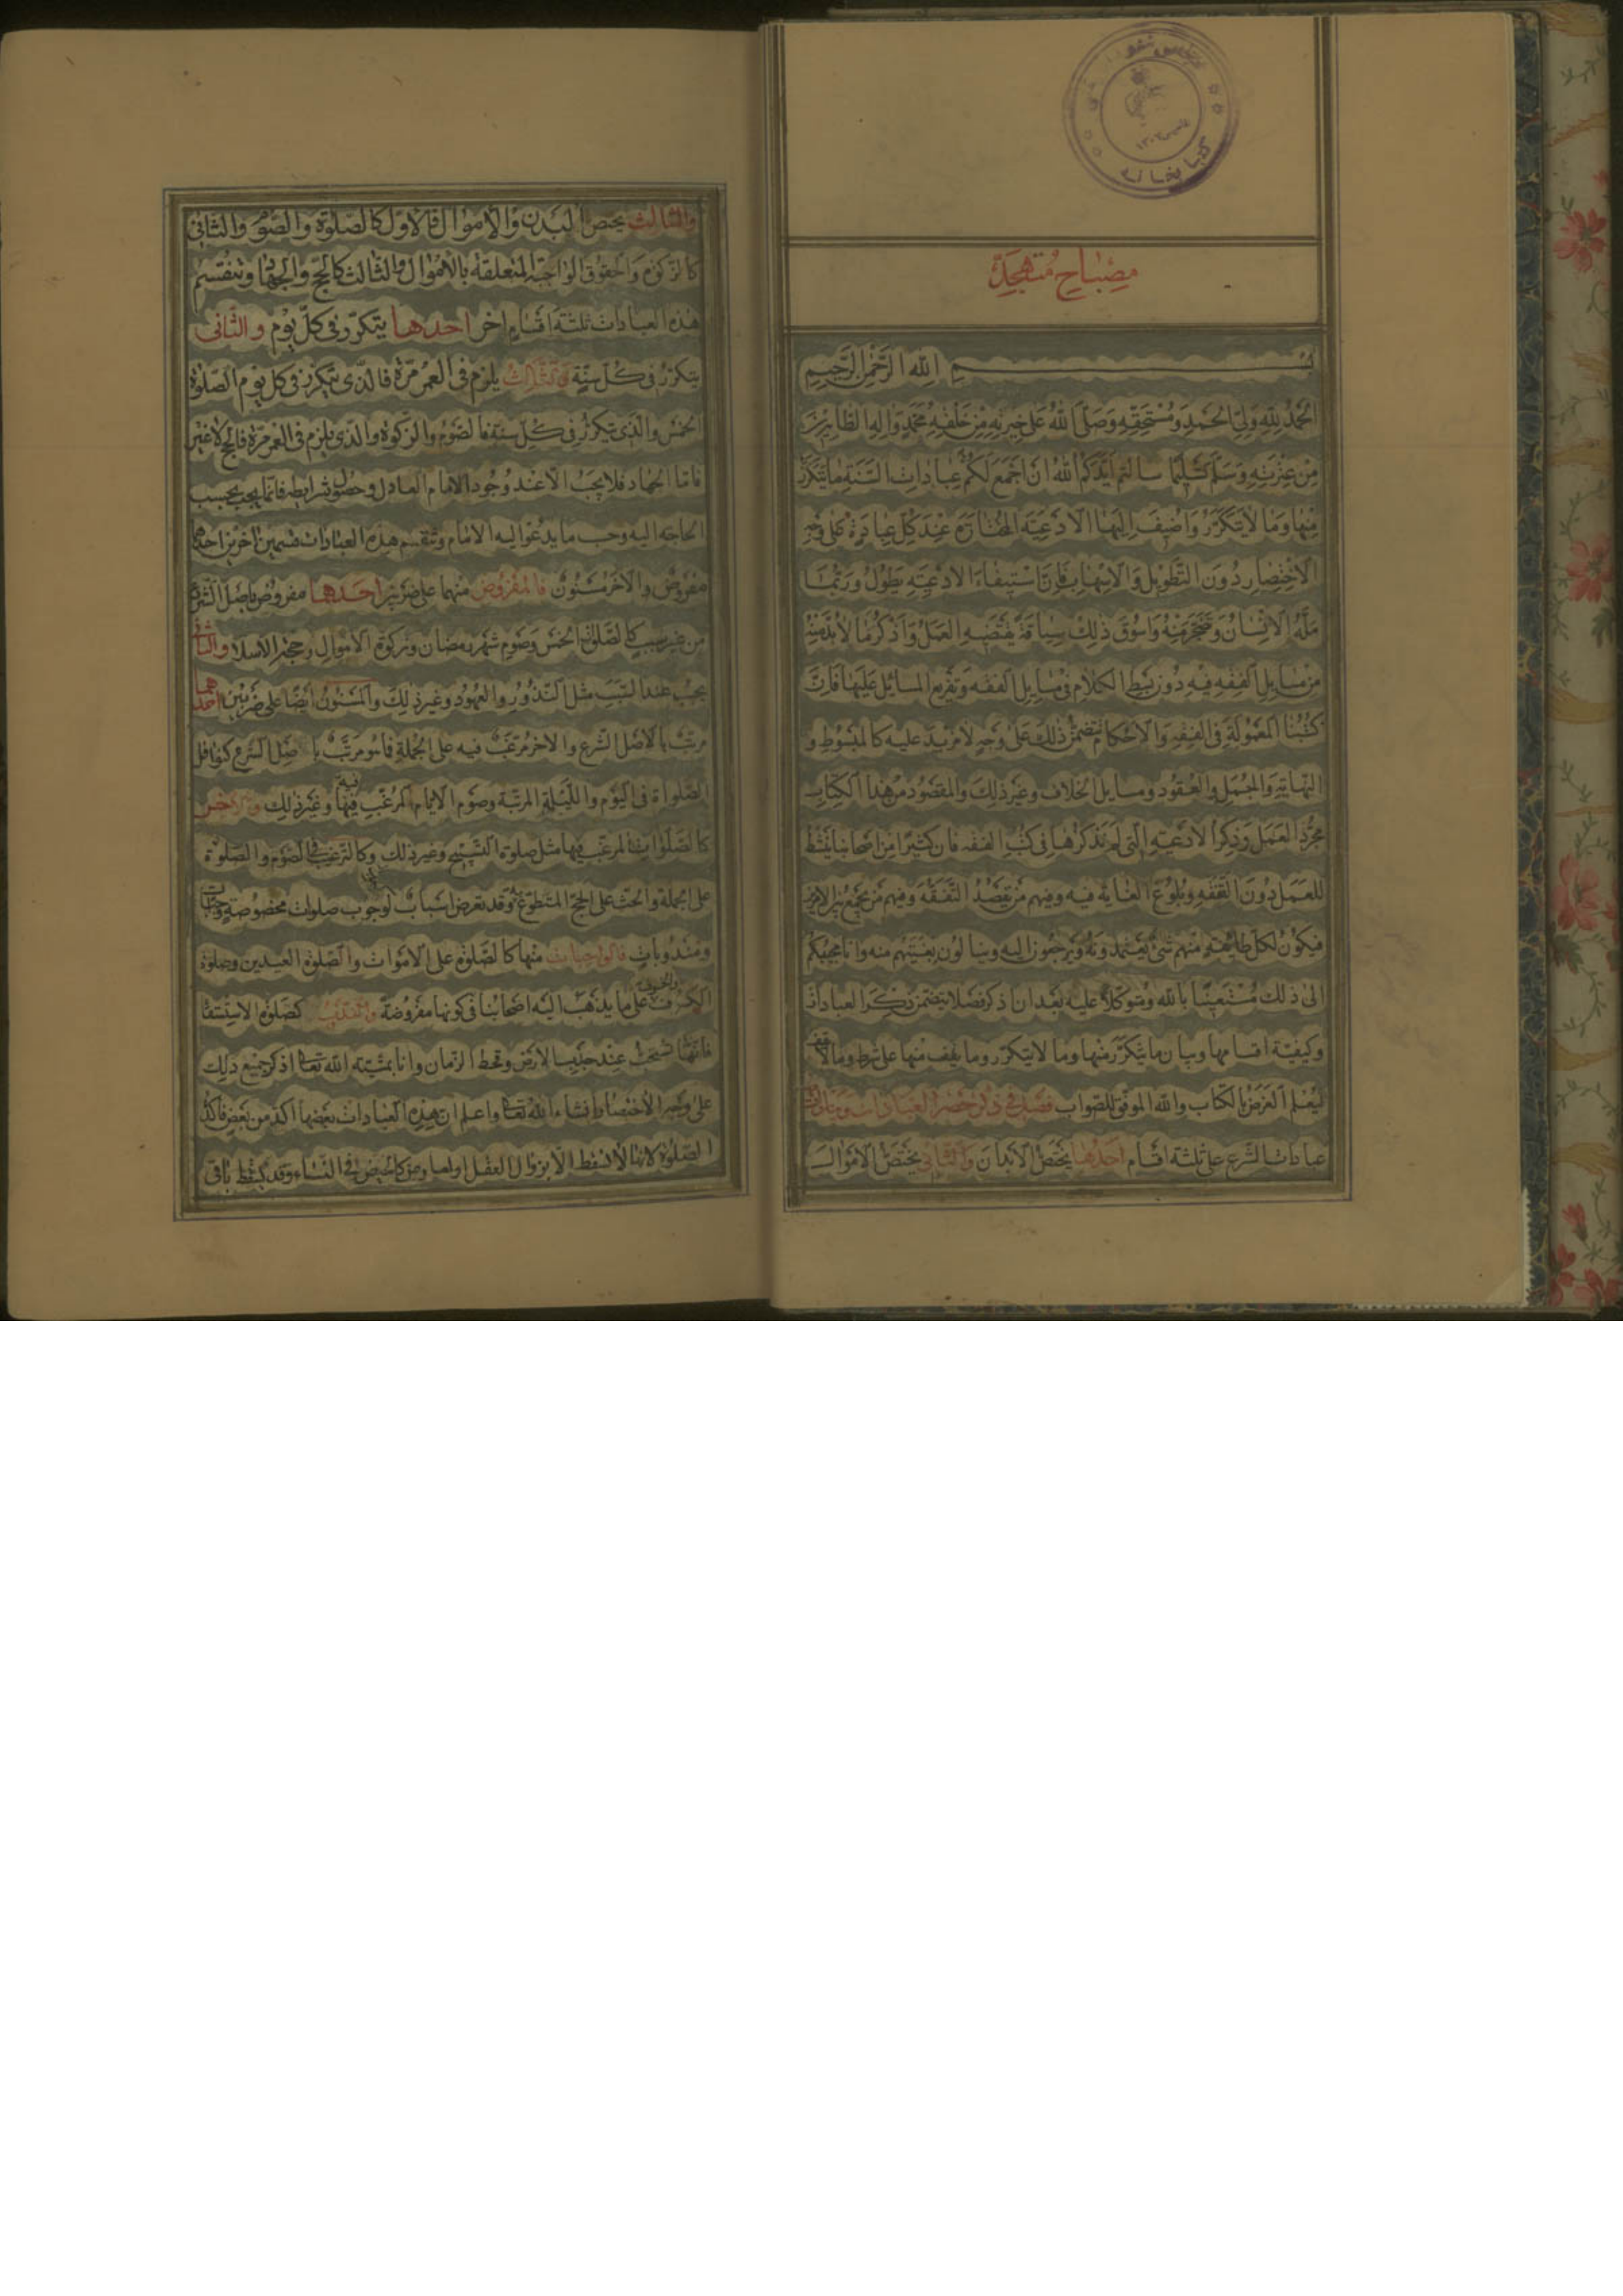 کتابخانه
مصباح متهجّد
بسم الله الرحمن الرحيم
الحمد لله ولىّ الحمد ومستحقه وصلى الله على خيرته من خلقه محمد واله الطاهرين
من عترته وسلم تسليما سالتم ايدكم الله ان اجمع لكم عبادات السنة ما يتكرر
منها وما لا يتكرر واضيف اليها الادعية المختارة عند كل عبادة على وجه
الاختصار دون التطويل والاسهاب فان استيفاء الادعية يطول وربما
ملّه الانسان وضجر منه واسوق ذلك سياقة يقتضيه العمل واذكر ما لا بد منه
من مسايل الفقه فيه دون بسط الكلام فى مسايل الفقه وتفريع المسائل عليها فان
كتبنا المعمولة فى الفقه والاحكام تتضمن ذلك على وجه لا مزيد عليه كالمبسوط و
النهاية والجمل والعقود ومسايل الخلاف وغير ذلك والمقصود من هذا الكتاب
مجرد العمل وذكر الادعية التى لم نذكرها فى كتب الفقه فان كثيرا من اصحابنا ينشط
للعمل دون التفقه وبلوغ الغاية فيه وفيهم من يقصد التفقه وفيهم من يجمع بين الامرين
فيكون لكل طايفة منهم شئ يعتمدونه ويرجعون اليه وينالون بغيتهم منه وانا مجيبكم
الى ذلك مستعينا بالله ومتوكلا عليه بعد ان اذكر فصلا يتضمن ذكر العبادات
وكيفية اقسامها وبيان ما يتكرر منها وما لا يتكرر وما يقف منها على شرط وما لا يقف
ليعلم الغرض بالكتاب والله الموفق للصواب فصل فى ذكر حصر العبادات
عبادات الشرع على ثلثة اقسام احدها يختص الابدان والثانى يختص الاموال
والثالث يختص البدن والاموال فالاول كالصلوة والصوم والثانى
كالزكوة والحقوق الواجبة المتعلقة بالاموال والثالث كالحج والجهاد وتنقسم
هذه العبادات ثلثة اقسام اخر احدها يتكرر فى كل يوم والثانى
يتكرر فى كل سنة والثالث يلزم فى العمر مرة فالذى يتكرر فى كل يوم الصلوة
الخمس والذى يتكرر فى كل سنة فالصوم والزكوة والذى يلزم فى العمر مرة فالحج لا غير
فاما الجهاد فلا يجب الا عند وجود الامام العادل وحصول شرايطه فانما يجب بحسب
الحاجة اليه وحسب ما يدعو اليه الامام وتنقسم هذه العبادات قسمين اخرين احدهما
مفروض والاخر مسنون فالمفروض منهما على ضربين احدهما مفروض باصل الشرع
من غير سبب كالصلوة الخمس وصوم شهر رمضان وزكوة الاموال وحجة الاسلام والثانى
يجب عند السبب مثل النذور والعهود وغير ذلك والمسنون ايضا على ضربين احدهما
مرتب بالاصل الشرع والاخر مرغب فيه على الجملة فما هو مرتب باصل الشرع كنوافل
الصلواة فى اليوم والليلة المرتبة وصوم الايام المرغب فيها وغير ذلك والاخر
كالصلوات المرغب فيها مثل صلوة التسبيح وغير ذلك وكالترغيب فى الصوم والصلوة
على الجملة والحث على الحج المتطوع به وقد تعرض اسباب لوجوب صلوات مخصوصة واجبات
ومندوبات فالواجبات منها كالصلوة على الاموات والصلوة العيدين وصلوة
الكسوف على ما يذهب اليه اصحابنا فى كونها مفروضة والندب كصلوة الاستسقا
فانها تستحب عند جدب الارض وقحط الزمان وانا بمشية الله تعا اذكر جميع ذلك
على وجه الاختصار انشاء الله تعا واعلم ان هذه العبادات بعضها اكد من بعض فاكد
الصلوة لانها لا تسقط الا بزوال العقل فى النساء وقد يسقط باقى